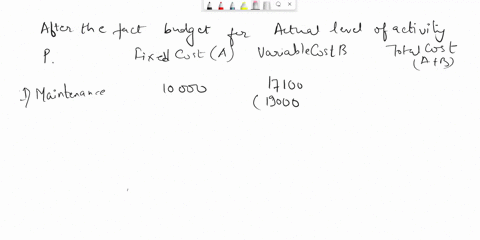 After the fact budget for Actual level of activity
P. Fixed Cost (A) Variable Cost B Total Cost (A+B)
1) Maintenance 10000 17100
(19000